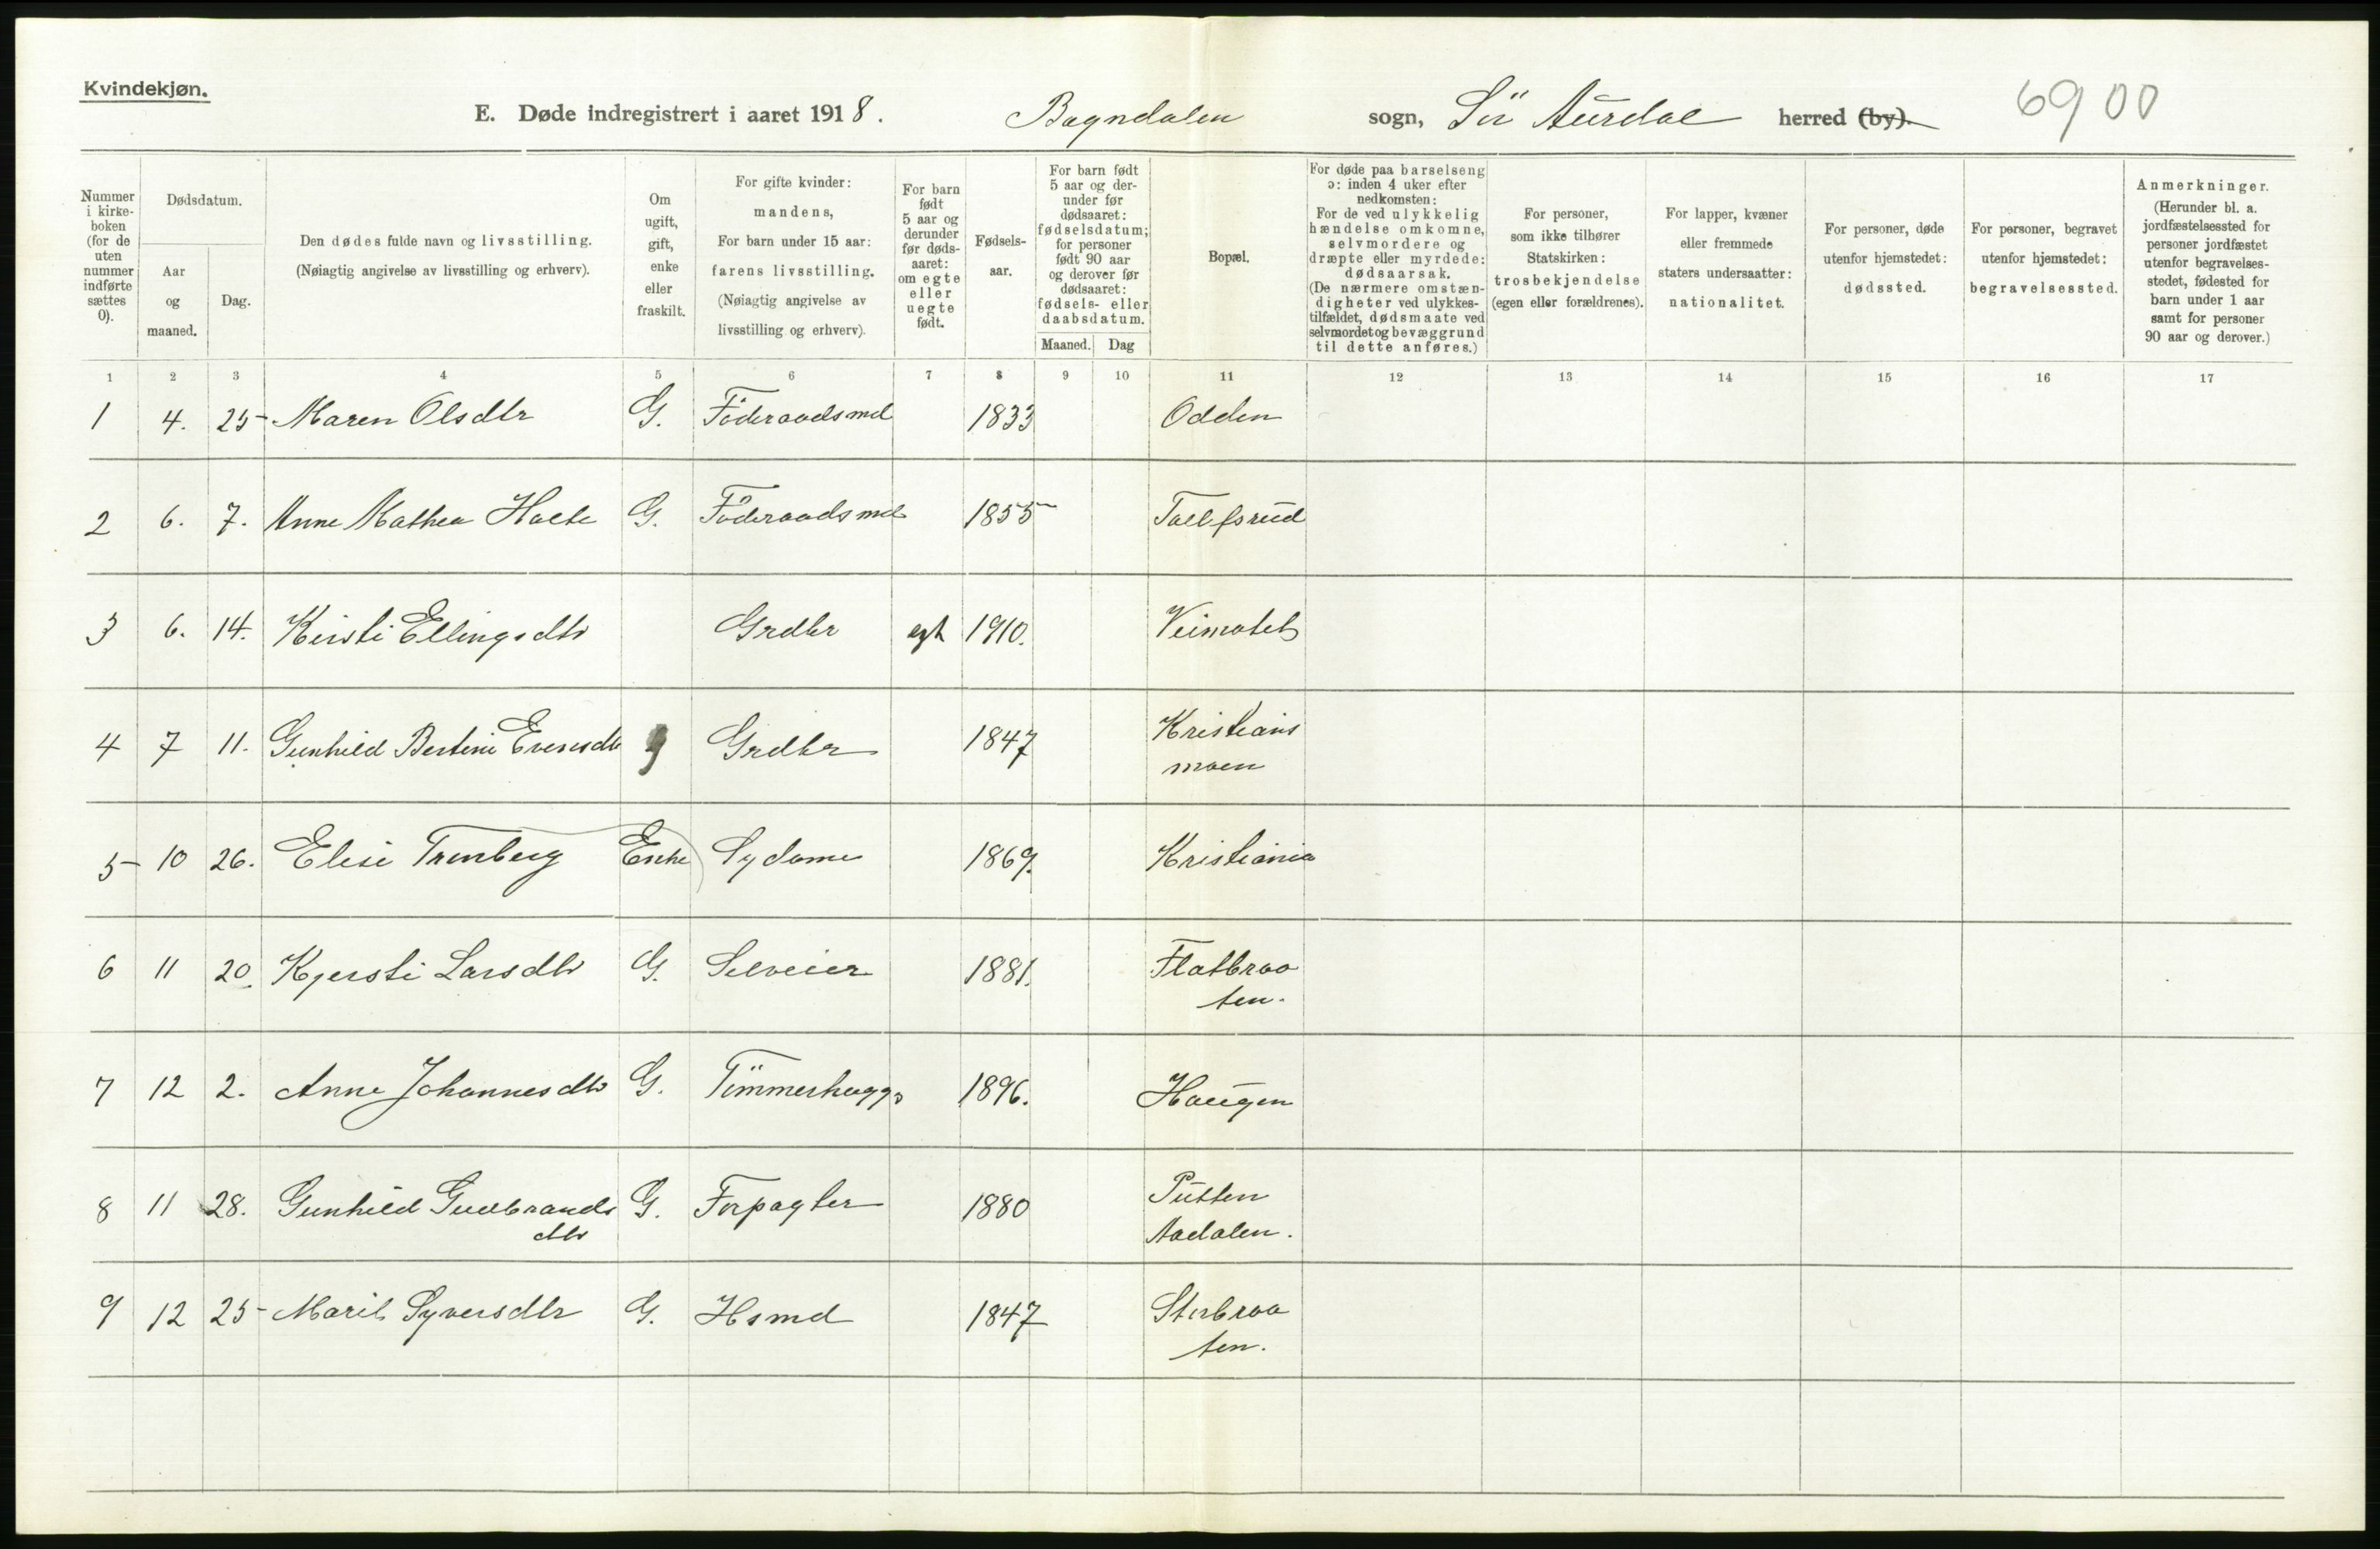 Kvindekjøn.
E. Døde indregistrert i aaret 1918. Bagndalen sogn, Sör Aurdal herred (by). 6900
Nummer i kirkeboken (for de uten nummer indførte sættes 0).
Dødsdatum.
Aar og maaned.
Dag.
Den dødes fulde navn og livsstilling.
(Nøiagtig angivelse av livsstilling og erhverv).
Om ugift, gift, enke eller fraskilt.
For gifte kvinder: mandens,
For barn under 15 aar: farens livsstilling.
(Nøiagtig angivelse av livsstilling og erhverv).
For barn født 5 aar og derunder før dødsaaret: om egte eller uegte født.
Fødselsaar.
For barn født 5 aar og derunder før dødsaaret: fødselsdatum; for personer født 90 aar og derover før dødsaaret: fødsels- eller daabsdatum.
Maaned. Dag
Bopæl.
For døde paa barselseng ɔ: inden 4 uker efter nedkomsten:
For de ved ulykkelig hændelse omkomne, selvmordere og dræpte eller myrdede: dødsaarsak.
(De nærmere omstændigheter ved ulykkestilfældet, dødsmaate ved selvmordet og bevæggrund til dette anføres.)
For personer, som ikke tilhører Statskirken: trosbekjendelse (egen eller forældrenes).
For lapper, kvæner eller fremmede staters undersaatter: nationalitet.
For personer, døde utenfor hjemstedet: dødssted.
For personer, begravet utenfor hjemstedet: begravelsessted.
Anmerkninger.
(Herunder bl. a. jordfæstelsessted for personer jordfæstet utenfor begravelsesstedet, fødested for barn under 1 aar samt for personer 90 aar og derover.)
1 2 3 4 5 6 7 8 9 10 11 12 13 14 15 16 17
1 4. 25 Maren Olsdtr G. Föderaadsmd 1833 Odden
2 6. 7. Anne Mathea G. Föderaadsmd 1855 Tollefsrud
3 6. 14. Kirsti Ellingsdtr Grdbr egt 1910. Veimotet
4 7 11. Gunhild Bertine Evensdtr g Grdbr 1847 Kristians
moen
5 10 26. Elise Trenberg Enke Sydame 1869. Kristiania
6 11 20. Kjersti Larsdtr G. Selveier 1881. Flatbraa
ten.
7 12 2. Anne Johannesdtr G. Tömmerhugger 1896. Haugen
8 11 28. Gunhild Gudbrands G. Forpagter 1880 Putten
dtr Aadalen.
9 12 25 Marit Syversdtr G. Hsmd 1847 Storbraa
ten.